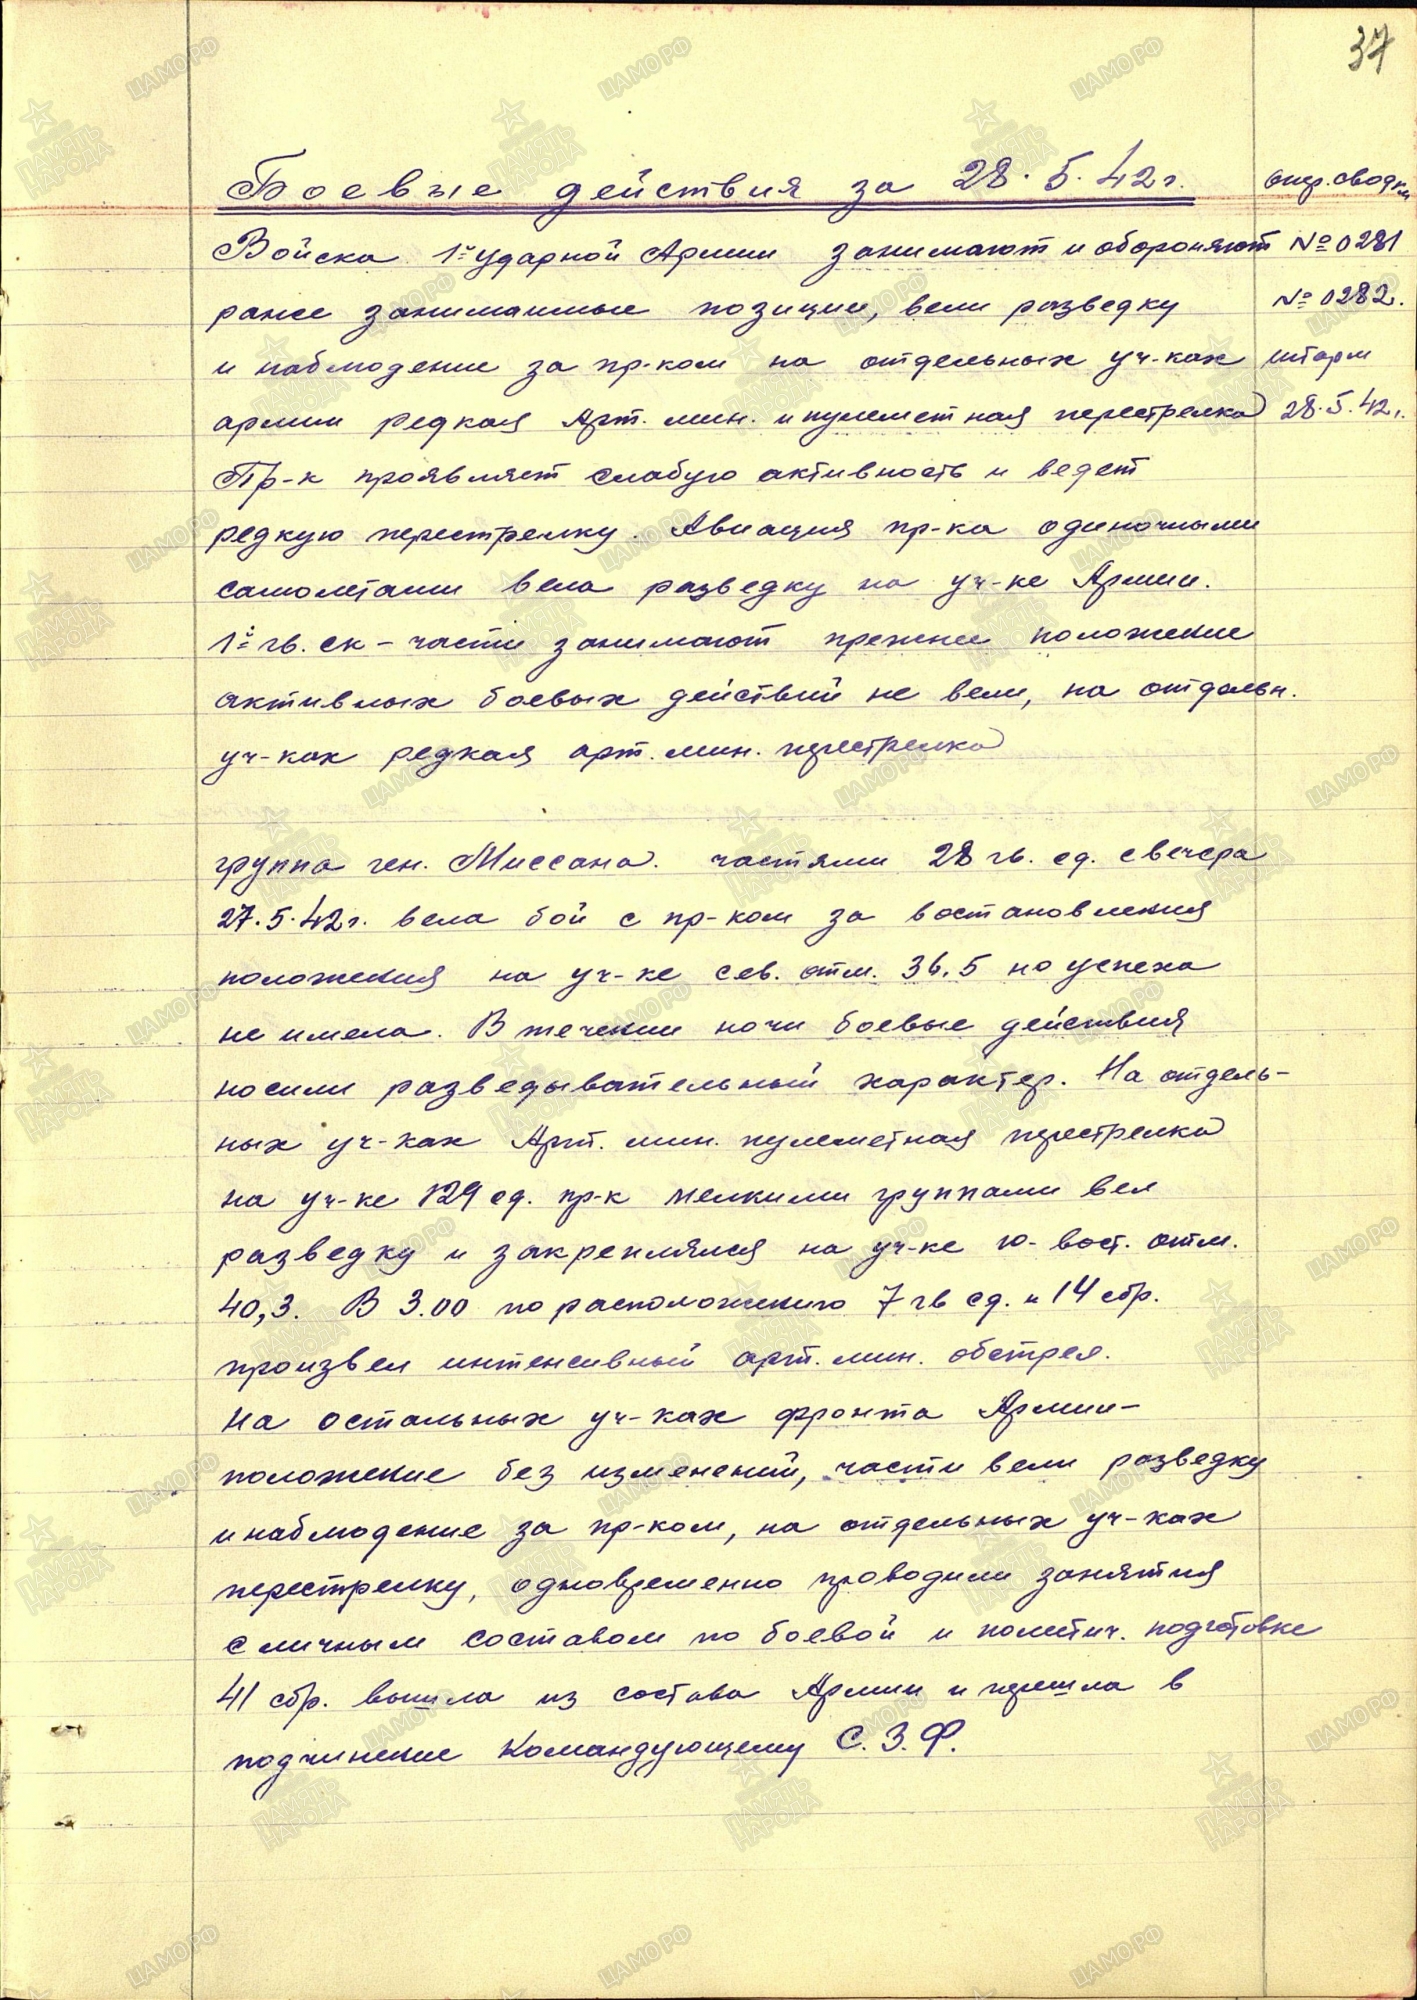 37
Боевые действия за 28.5.42г.
опер. сводки
Войска 1й ударной Армии занимают и обороняют
№ 0281
ранее занимаемые позиции, вели разведку
№ 0282.
и наблюдение за пр-ком на отдельных уч-ках
штарм
армии редкая Арт. мин. и пулеметная перестрелка
28.5.42г.
Пр-к проявляет слабую активность и ведет
редкую перестрелку. Авиация пр-ка одиночными
самолетами вела разведку на уч-ке Армии.
1й гв. ск – части занимают прежнее положение
активных боевых действий не вели, на отдельн.
уч-ках редкая арт. мин. перестрелка
группа ген. Миссана. частями 28 гв. сд. с вечера
27.5.42г. вела бой с пр-ком за востановления
положения на уч-ке сев. отм. 36.5 но успеха
не имела. В течении ночи боевые действия
носили разведывательный характер. На отдель-
ных уч-ках Арт. мин. пулеметная перестрелка
на уч-ке 129 сд. пр-к мелкими группами вел
разведку и закреплялся на уч-ке ю-вост. отм.
40,3. В 3.00 по расположению 7 гв сд. и 14 сбр.
произвел интенсивный арт. мин. обстрел.
На остальных уч-ках фронта Армии –
положение без изменений, части вели разведку
и наблюдение за пр-ком, на отдельных уч-ках
перестрелку, одновременно проводили занятия
с личным составом по боевой и политич. подготовке
41 сбр. вышла из состава Армии и перешла в
подчинение Командующему С.З.Ф.
ЦАМО РФ
ПАМЯТЬ НАРОДА